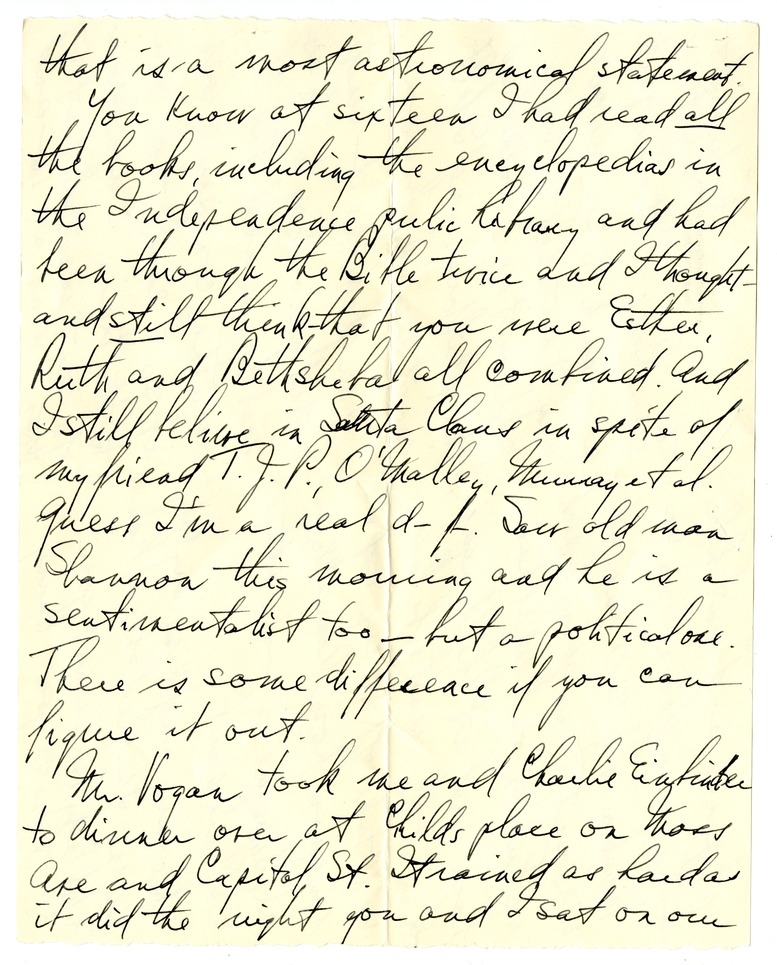 that is a most astronomical statement.
You know at sixteen I had read all
the books, including the encyclopedias in
the Independence pulic library and had
been through the Bible twice and I thought-
and still think-that you were Esther,
Ruth and Bethsheba all combined. And
I still believe in Santa Claus in spite of
my friend T.J.P., O'Malley, Murray et al.
guess I'm a real d- f-. Saw old man
Shannon this morning and he is a
sentimentalist too - but a political one.
There is some difference if you can
figure it out.
Mr. Vogan took me and Charlie
to dinner over at Childs place on Mass
Ave and Capitol St. It rained as hard as
it did the night you and I sat on our